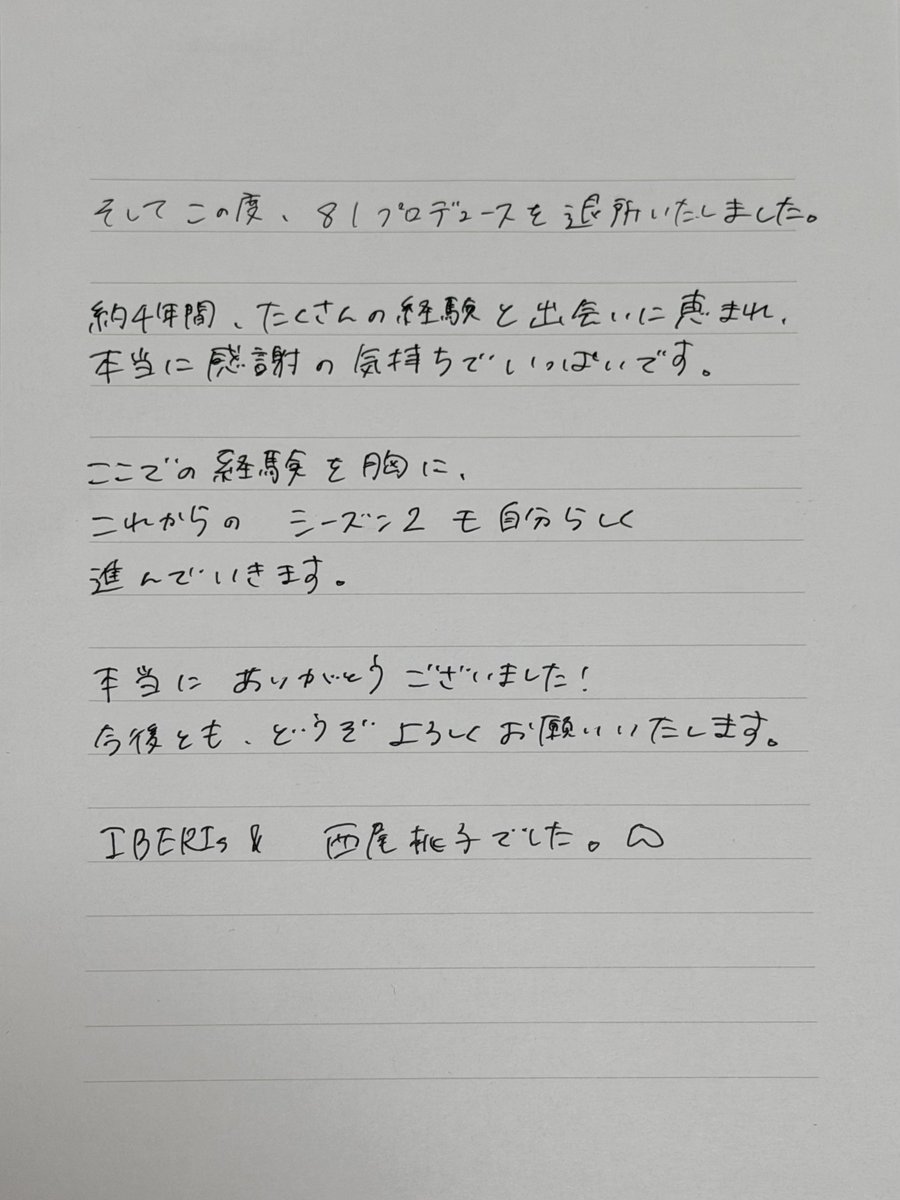 そしてこの度、81プロデュースを退所いたしました。
約4年間、たくさんの経験と出会いに恵まれ、
本当に感謝の気持ちでいっぱいです。
ここでの経験を胸に、
これからの シーズン2 も自分らしく
進んでいきます。
本当に ありがとう ございました!
今後とも、どうぞ よろしく お願いいたします。
IBERIs & 西尾桃子でした。